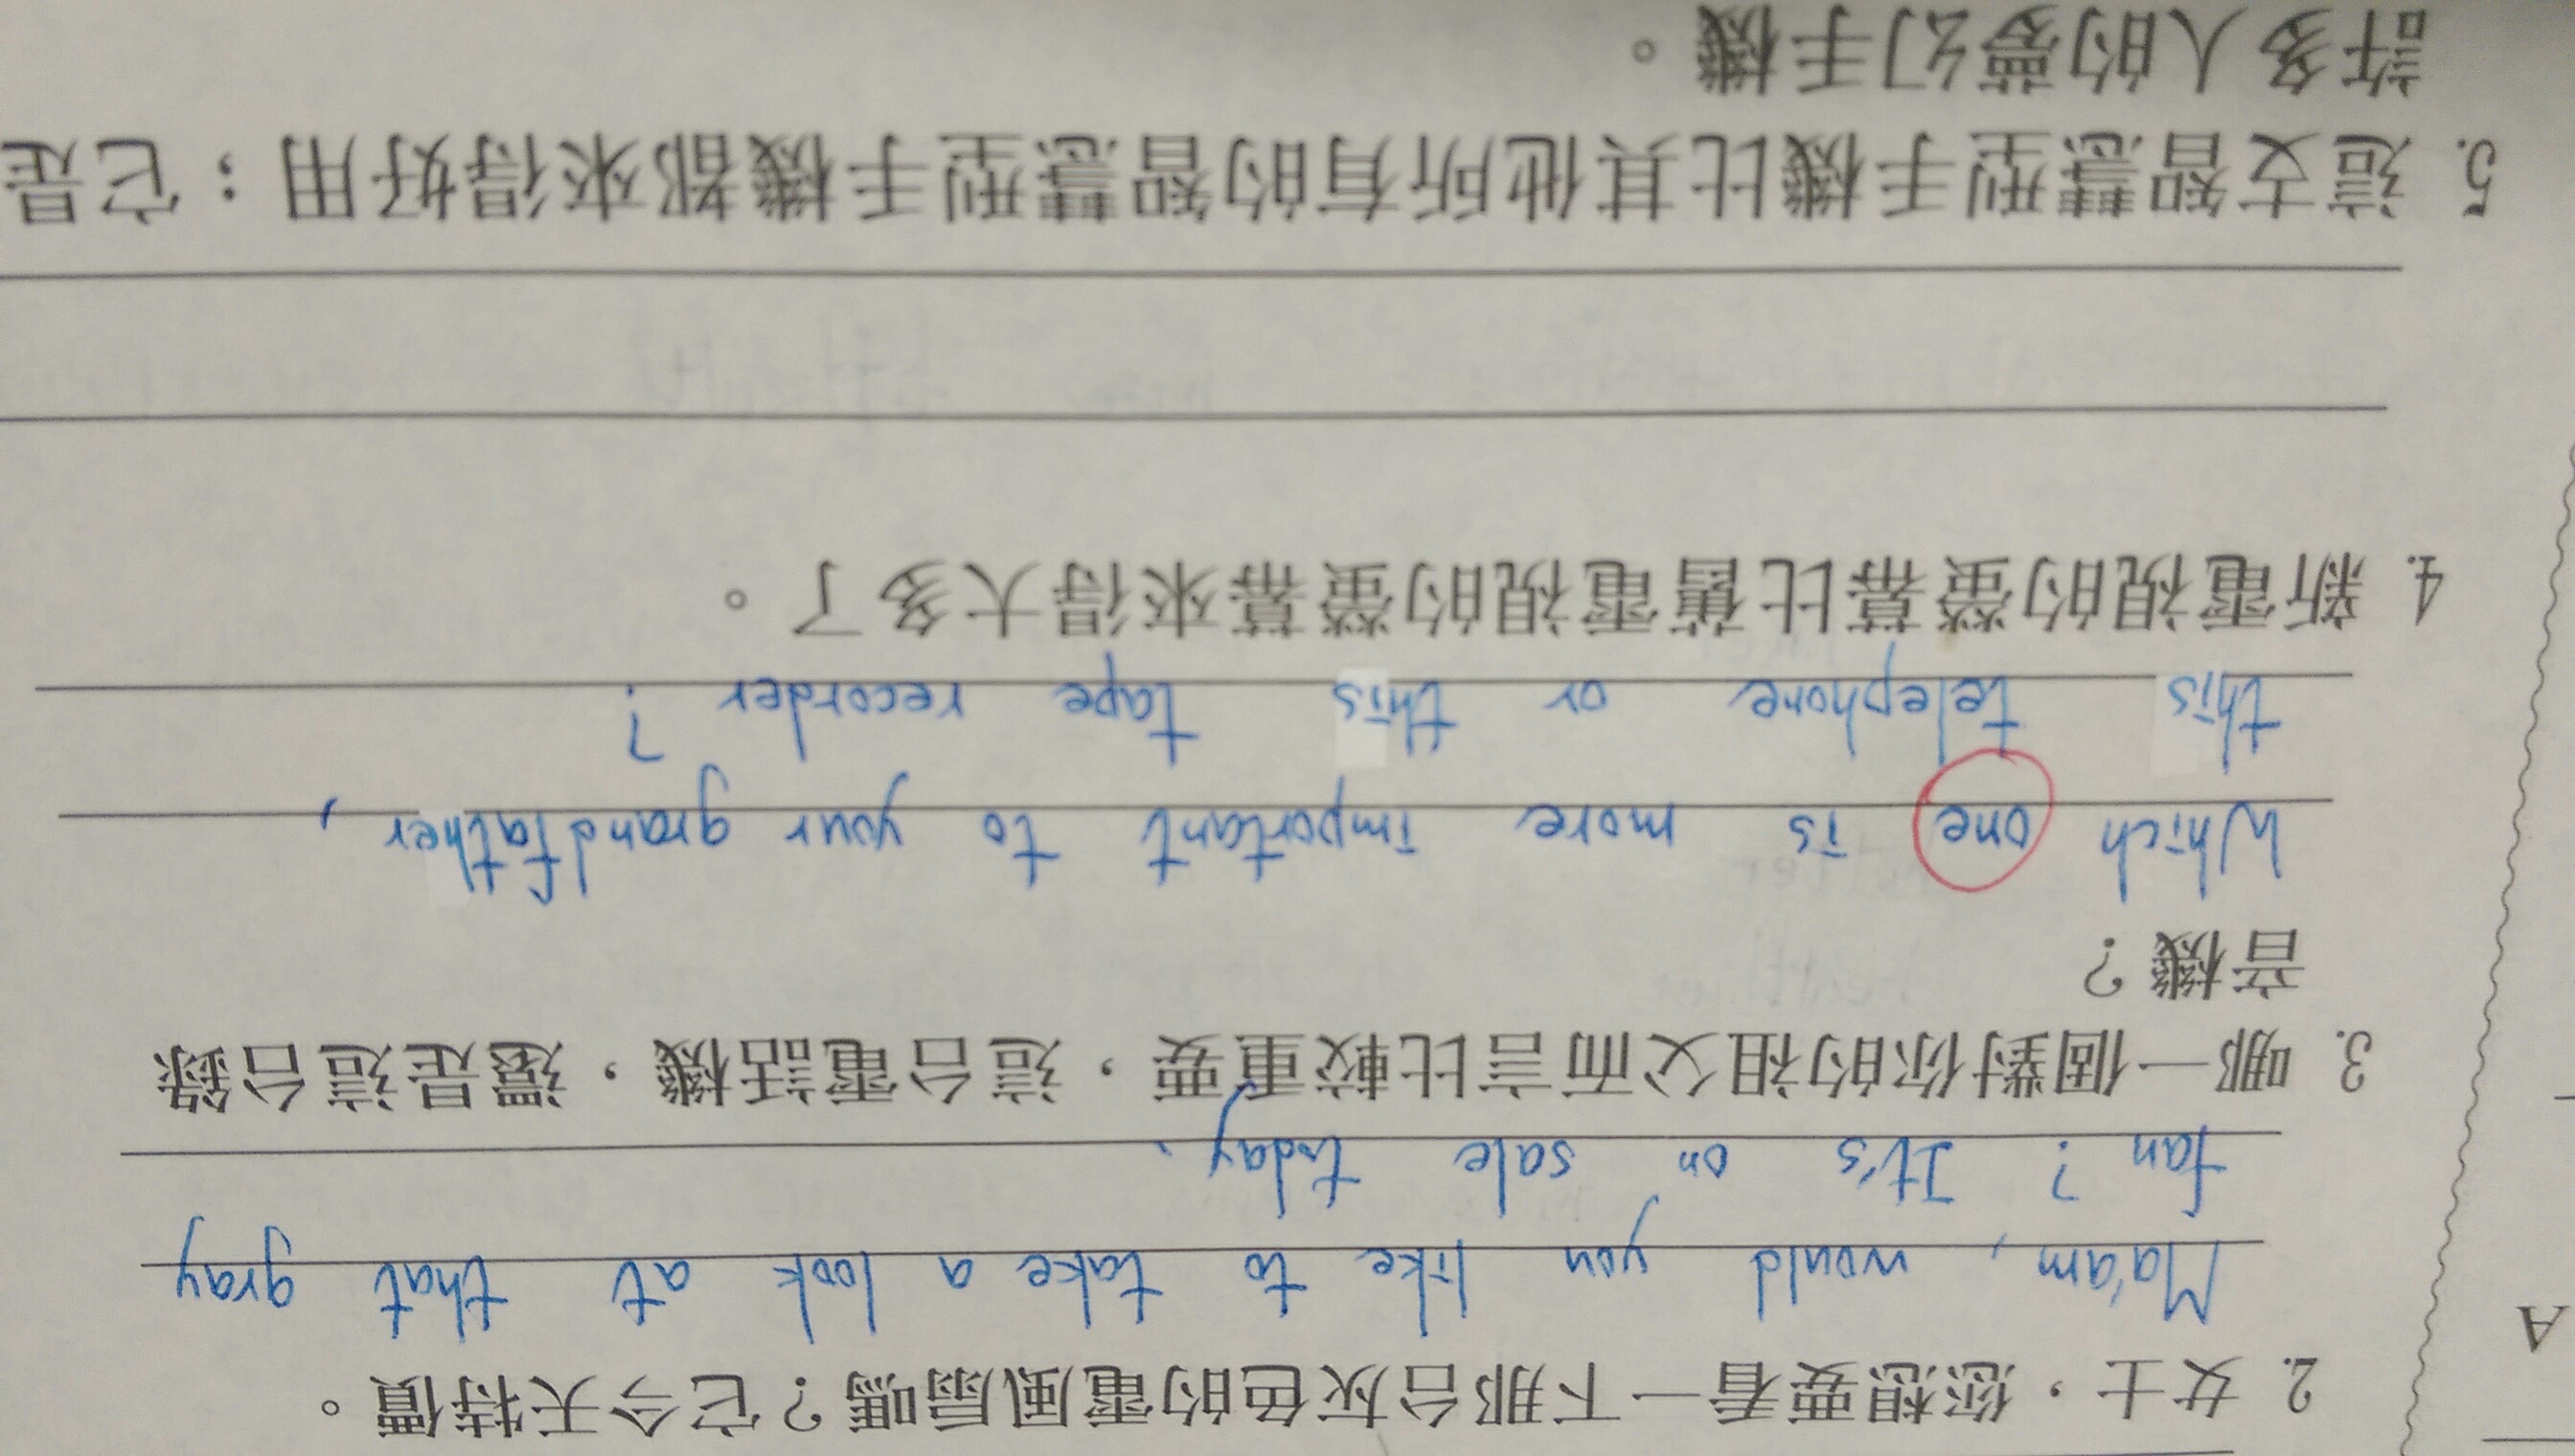 2. 女士，您想要看一下那台灰色的電風扇嗎？它今天特價。
Ma'am, would you like to take a look at that gray
fan? It's on sale today.
A
3. 哪一個對你的祖父而言比較重要，這台電話機，還是這台錄
音機？
Which one is more important to your grandfather,
this telephone or this tape recorder?
4. 新電視的螢幕比舊電視的螢幕來得大多了。
5. 這支智慧型手機比其他所有的智慧型手機都來得好用；它是
許多人的夢幻手機。